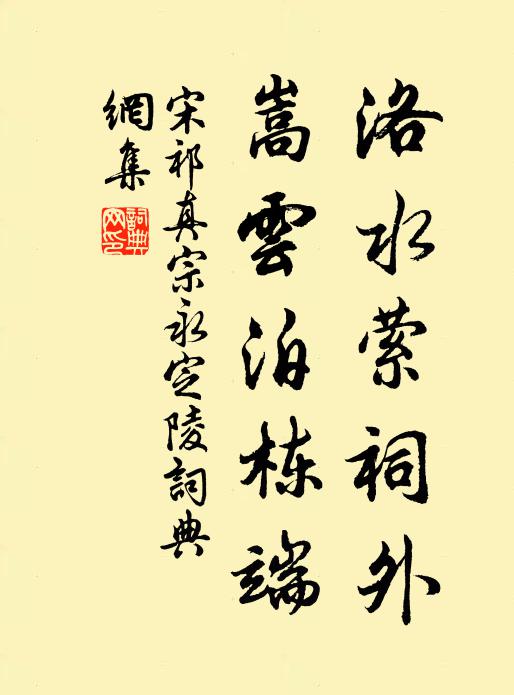 洛水萦祠外
嵩雲泊栋端
宋祁真宗永定陵詞典
網集
詞典網印